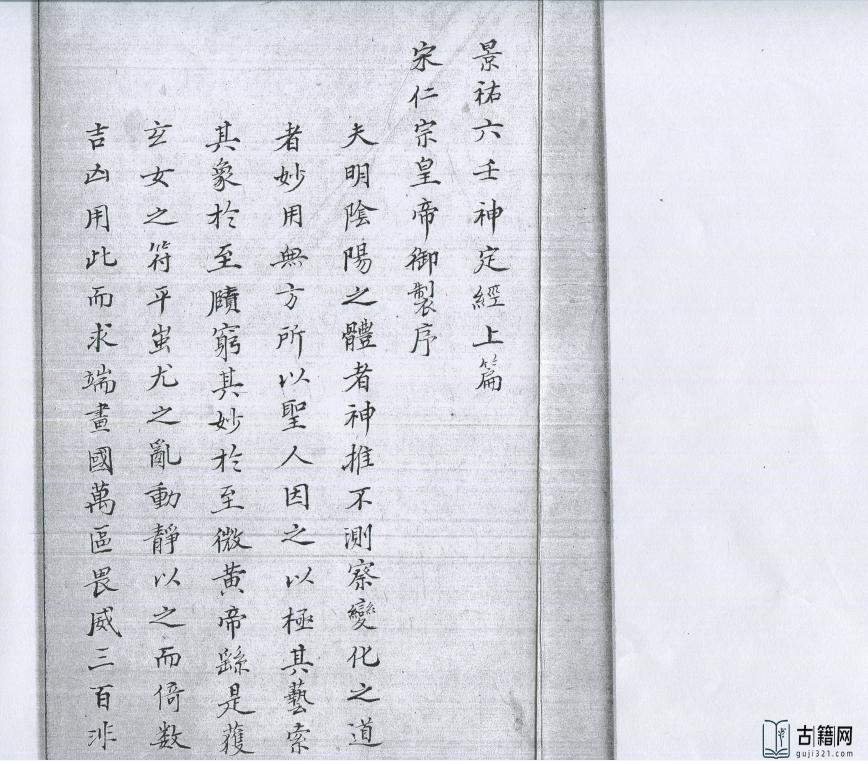 景祐六壬神定經上篇
宋仁宗皇帝御製序
夫明陰陽之體者神推不測察變化之道
者妙用無方所以聖人因之以極其藝索
其象於至賾窮其妙於至微黃帝繇是獲
玄女之符平蚩尤之亂動靜以之而倚数
吉凶用此而求端畫國萬區畏威三百非
古籍网
guji321.com